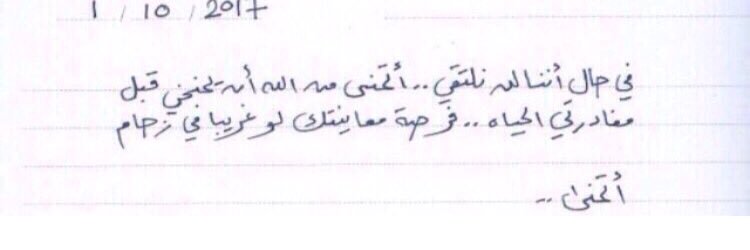 1 / 10 / 2017
في حال أننا لن نلتقي .. أتمنى من الله أن يمنحني قبل
مغادرتي الحياه .. فرصة معاينتك لو غريبا في زحام
أتمنى ..